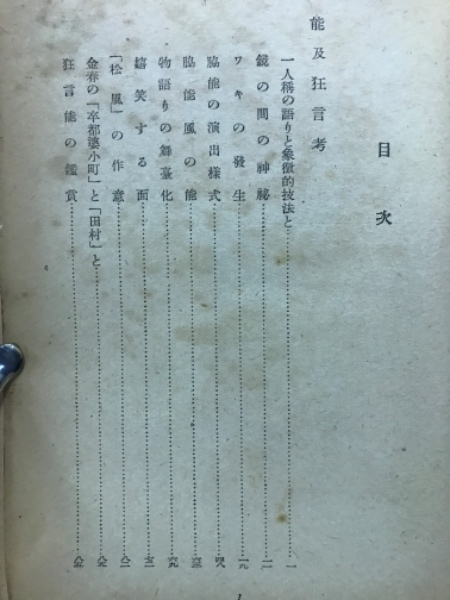 目次
能及狂言考
一人稱の語りと象徴的技法と……一
鏡の間の神祕……一一
ワキの發生……一九
脇能の演出樣式……四八
脇能風の能……
物語りの舞臺化……六九
嬉笑する面……
「松風」の作意……
金春の「卒都婆小町」と「田村」と……
狂言能の鑑賞……